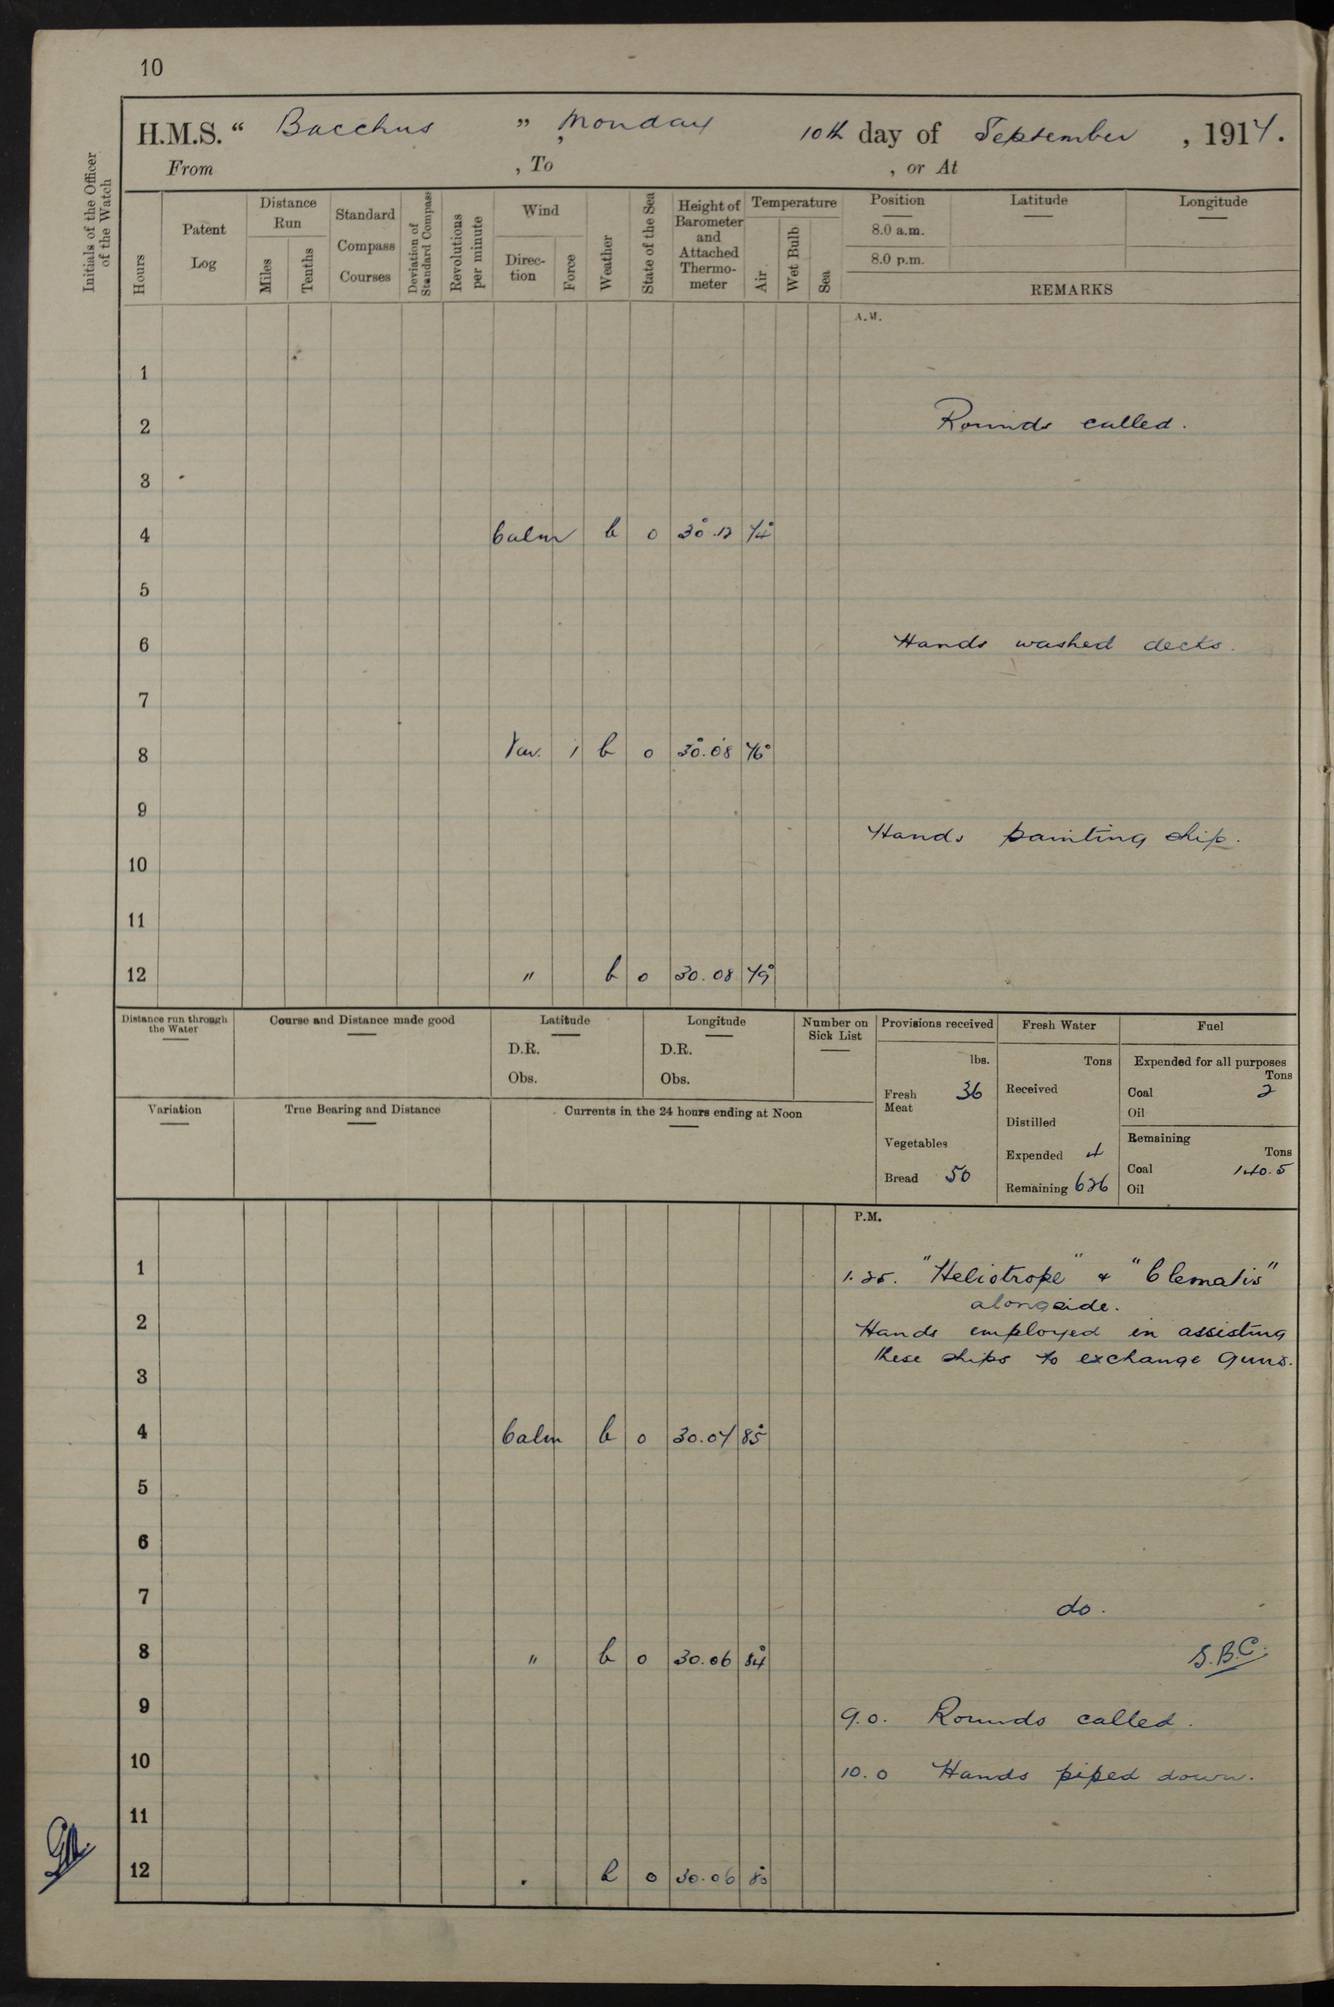 10
H.M.S. “ Bacchus ” , Monday 10th day of September , 1917.
From , To , or At
Initials of the Officer of the Watch
Hours
Patent Log
Distance Run
Miles
Tenths
Standard Compass Courses
Deviation of Standard Compass
Revolutions per minute
Wind
Direction
Force
Weather
State of the Sea
Height of Barometer and Attached Thermometer
Temperature
Air
Wet Bulb
Sea
Position
8.0 a.m.
8.0 p.m.
Latitude
Longitude
REMARKS
A.M.
1
2 Rounds called.
3
4 Calm b o 30.12 74°
5
6 Hands washed decks.
7
8 Var. 1 b o 30.08 76°
9
Hands painting ship.
10
11
12 " b o 30.08 79°
Distance run through the Water
Course and Distance made good
Latitude
D.R.
Obs.
Longitude
D.R.
Obs.
Number on Sick List
Provisions received
lbs.
Fresh Meat 36
Vegetables
Bread 50
Fresh Water
Tons
Received
Distilled
Expended 4
Remaining 626
Fuel
Expended for all purposes
Tons
Coal 2
Oil
Remaining
Tons
Coal 140.5
Oil
Variation
True Bearing and Distance
Currents in the 24 hours ending at Noon
P.M.
1 1.25. "Heliotrope" & "Clematis"
alongside.
2 Hands employed in assisting
these ships to exchange guns.
3
4 Calm b o 30.07 85°
5
6
7 do.
8 " b o 30.06 84° S.B.C.
9 9.0. Rounds called.
10 10.0 Hands piped down.
11
12 " b o 30.06 80°